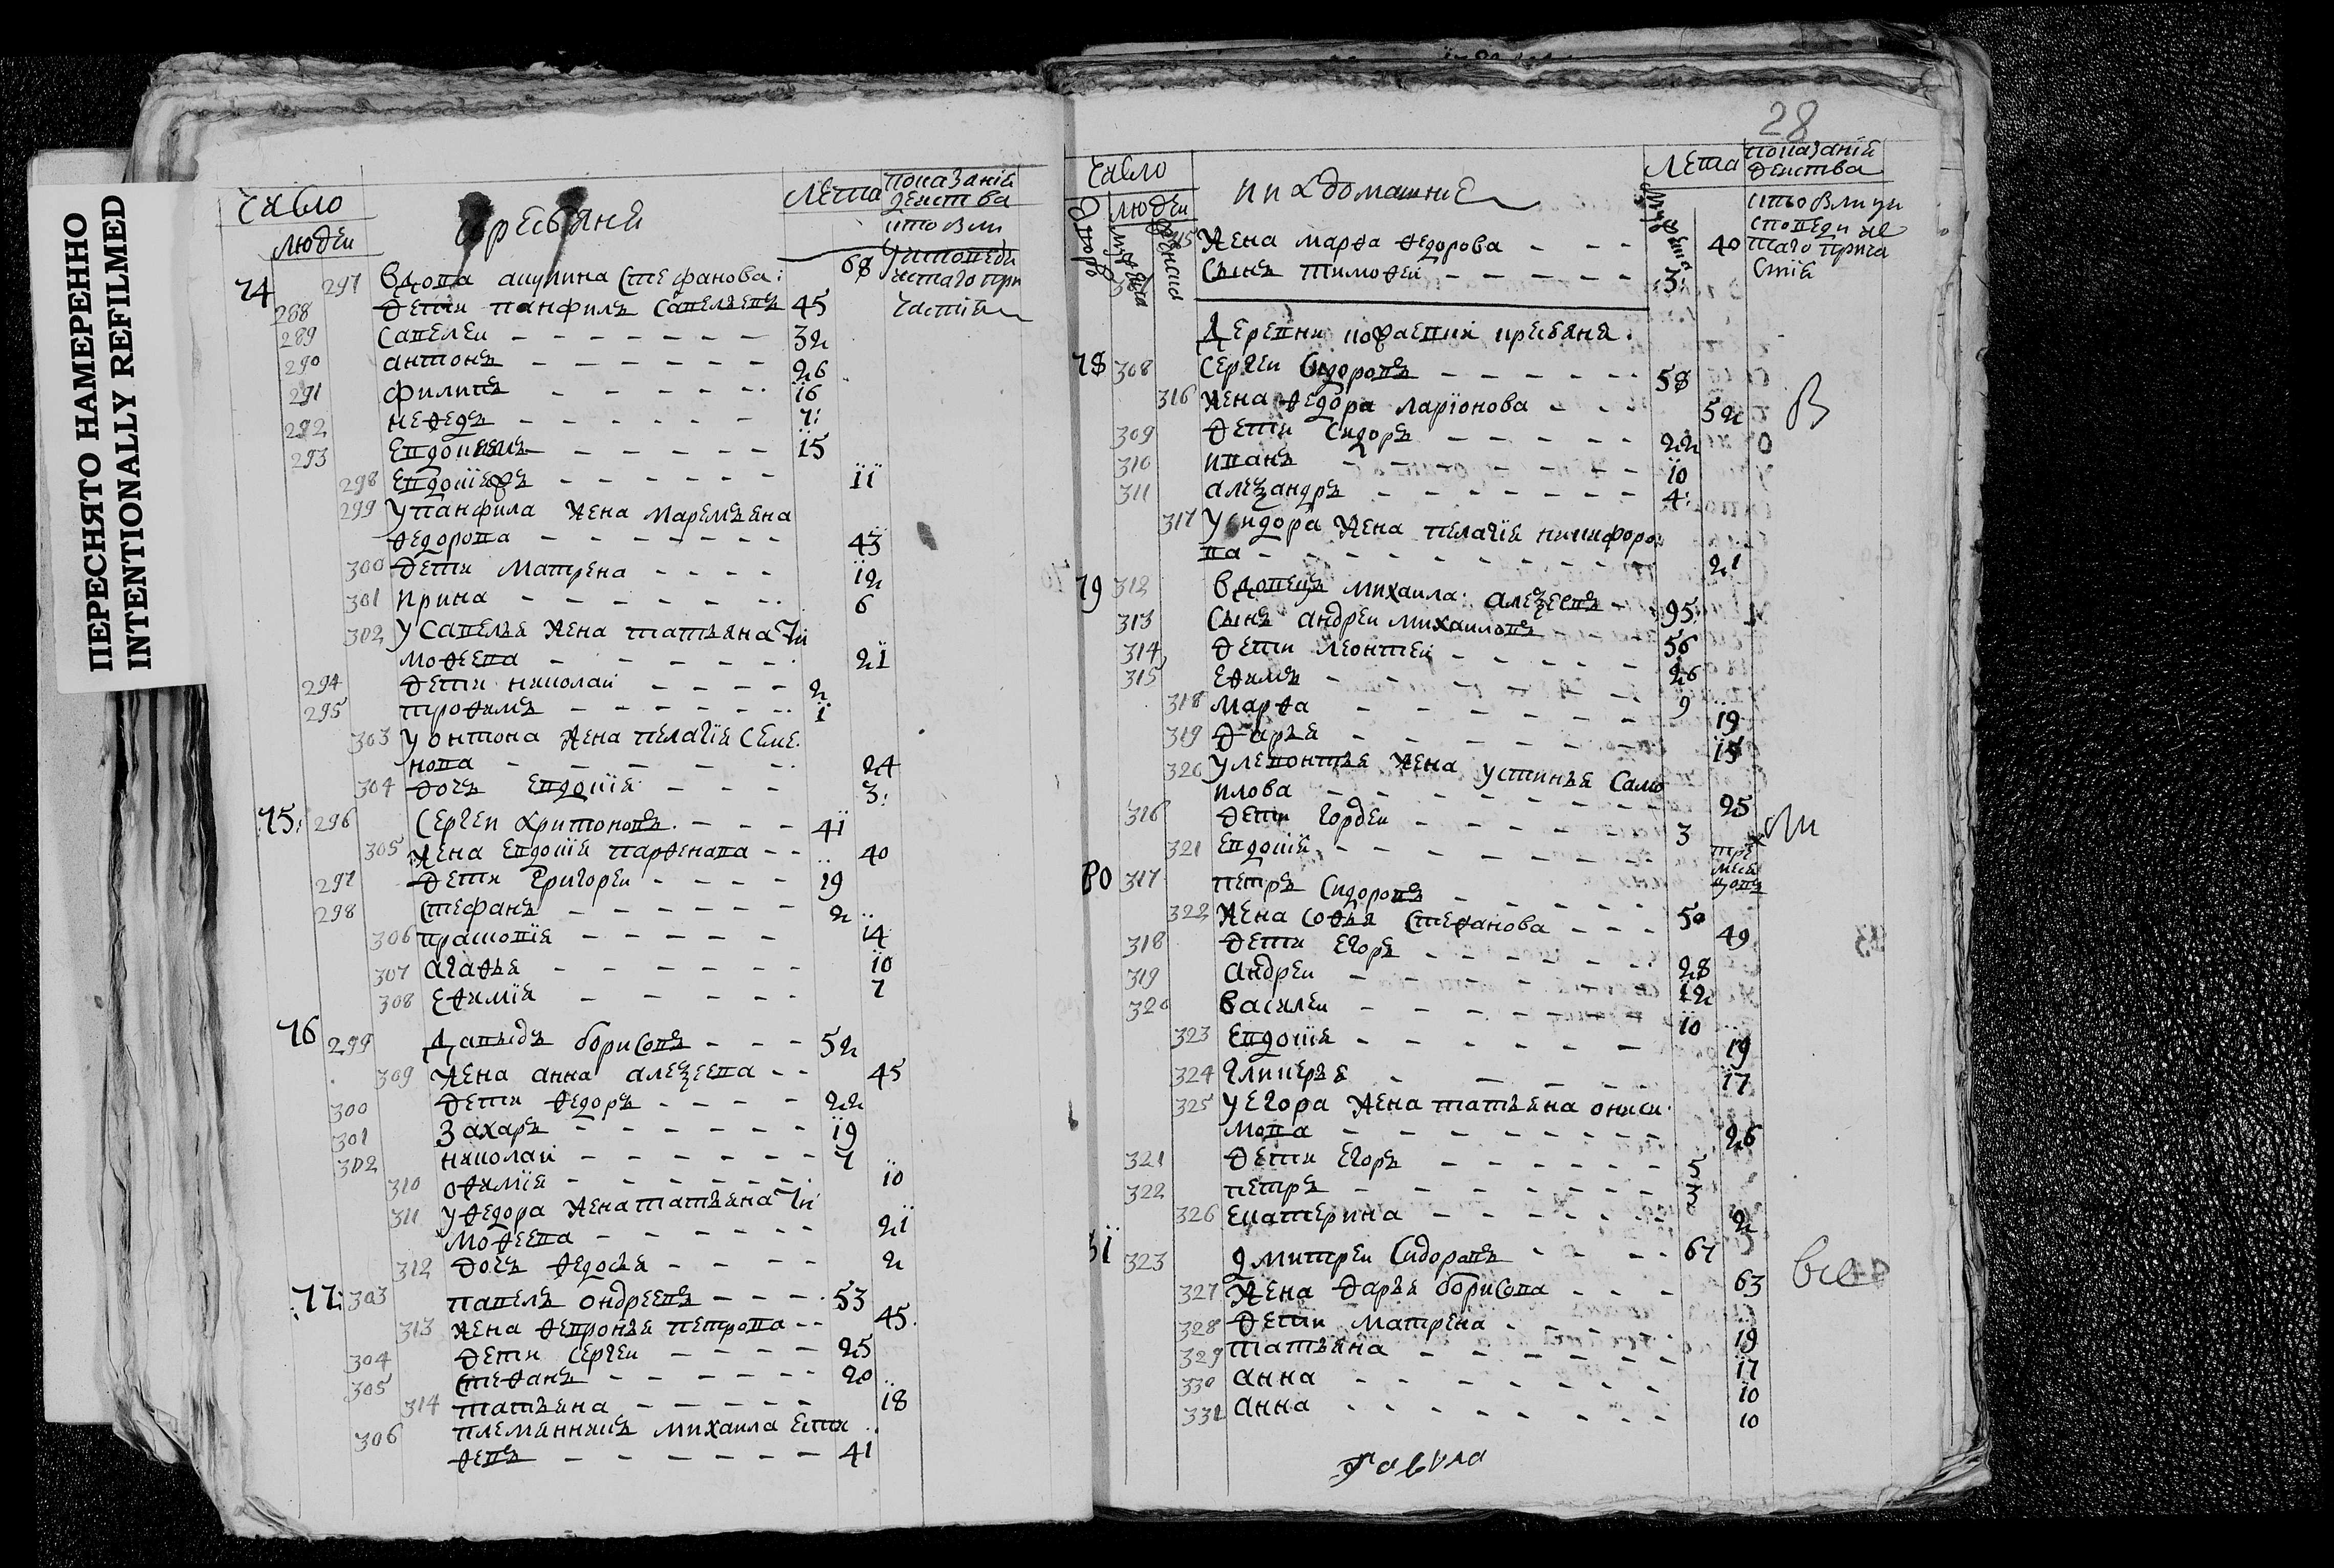 ПЕРЕСНЯТО НАМЕРЕННО
INTENTIONALLY REFILMED
Число
людеи
Кресьяня
Лета
показаніи
деиства
кто были
74 297 Вдова акулина Стефанова: 68
288 Дети панфилъ Савельевъ 45
289 Савелеи 32
290 антонъ 26
291 филипъ 16
292 неѳедъ 7:
293 Евдокимъ 15
298 Евдокіея 11
299 У панфила жена маремьяна
ѳедорова 43
300 Дети Матрена 12
301 Ирина 6
302 У Савелья жена татьяна Ти
моѳеева 21
294 Дети николаи 2
295 троѳимъ 1
303 У онтона жена пелагія Семе
нова 24
304 Дочь Евдокія 3:
75: 296 Сергеи Харитоновъ 41
305 Жена Евдокія парѳенава 40
297 Дети Григореи 19
298 Стефанъ 2
306 прасковія 14
307 агаѳья 10
308 Еѳимія 7
76 299 Давыдъ борисовъ 52
309 Жена анна алеѯеева 45
300 Дети ѳедоръ 22
301 Захаръ 19
302 николаи 7
310 оѳимія 10
311 У ѳедора жена татьяна Ти
моѳеева 21
312 Дочь ѳедосья 2
:77: 303 павелъ ондреевъ 53
313 Жена ѳевронья петрова 45
304 Дети Сергеи 25
305 Стеѳанъ 20
314 татьяна 18
306 племянникъ михаила Евти
ѳевъ 41
28
Число
людеи
Дворо
и их домашние
Лета
показаніи
деиства
315 Жена марѳа ѳедорова 40
Сынъ тимоѳеи 3:
Деревни кресьяня.
78 308 Сергеи Сидоровъ 58
316 Жена ѳедора ларіонова 52
В
309 Дети Сидоръ 22
310 иванъ 10
311 алеѯандръ 4:
317 У Сидора жена пелагіе никифоро
ва 21
79 312 Вдовецъ михаила алеѯеевъ 95:
313 Сынъ андреи михаиловъ 56
314 Дети леонтеи 26
315 Еѳимъ 9
318 Марѳа 19
319 Дарья 15
320 У левонтья жена устинья Само
илова 25
316 Дети гордеи 3
321 Евдокія тре
меся
цовъ
80 317 петръ Сидоровъ 50
322 Жена Соѳья Стеѳанова 49
318 Дети Егоръ 28
319 андреи 12
320 Василеи 10
323 Евдокія 19
324 Гликерья 17
325 У Егора жена татьяна ониси
мова 26
321 Дети Егоръ 5
322 петръ 3
326 Екатерина 2
81 323 Дмитреи Сидоравъ 67
327 Жена Дарья борисова 63
328 Дети Матрена 19
329 татьяна 17
330 анна 10
331 анна 10